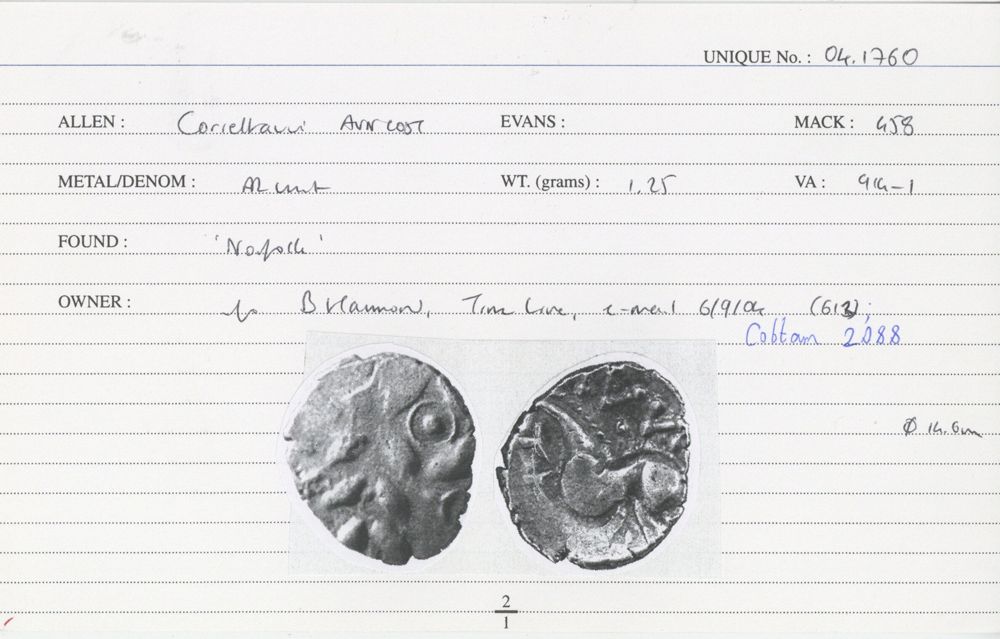 UNIQUE No. : 04.1760
ALLEN : Corieltauvi AVN COST EVANS : MACK : 458
METAL/DENOM : AR unit WT. (grams) : 1.25 VA : 914-1
FOUND : 'Norfolk'
OWNER : B Hammond, Time Line, e-mail 6/9/04 (613);
Cottam 2088
Ø 14.6mm
2
1